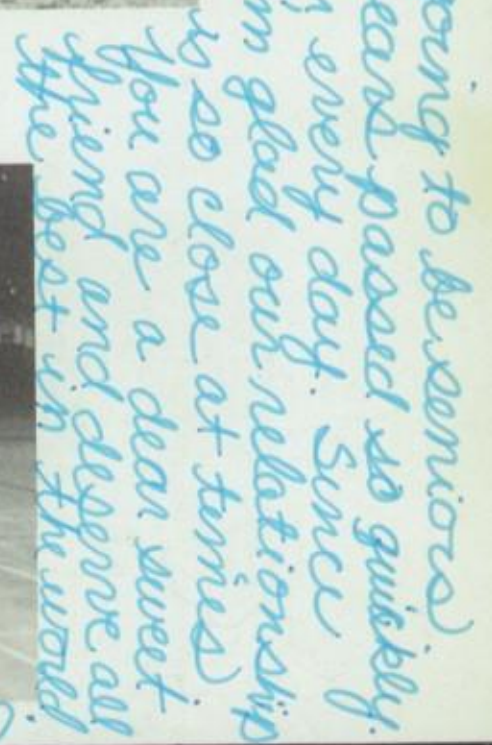 oing to be seniors
ears passed so quickly.
every day. Since
m glad our relationship
is so close at times
You are a dear sweet
friend and deserve all
the best in the world